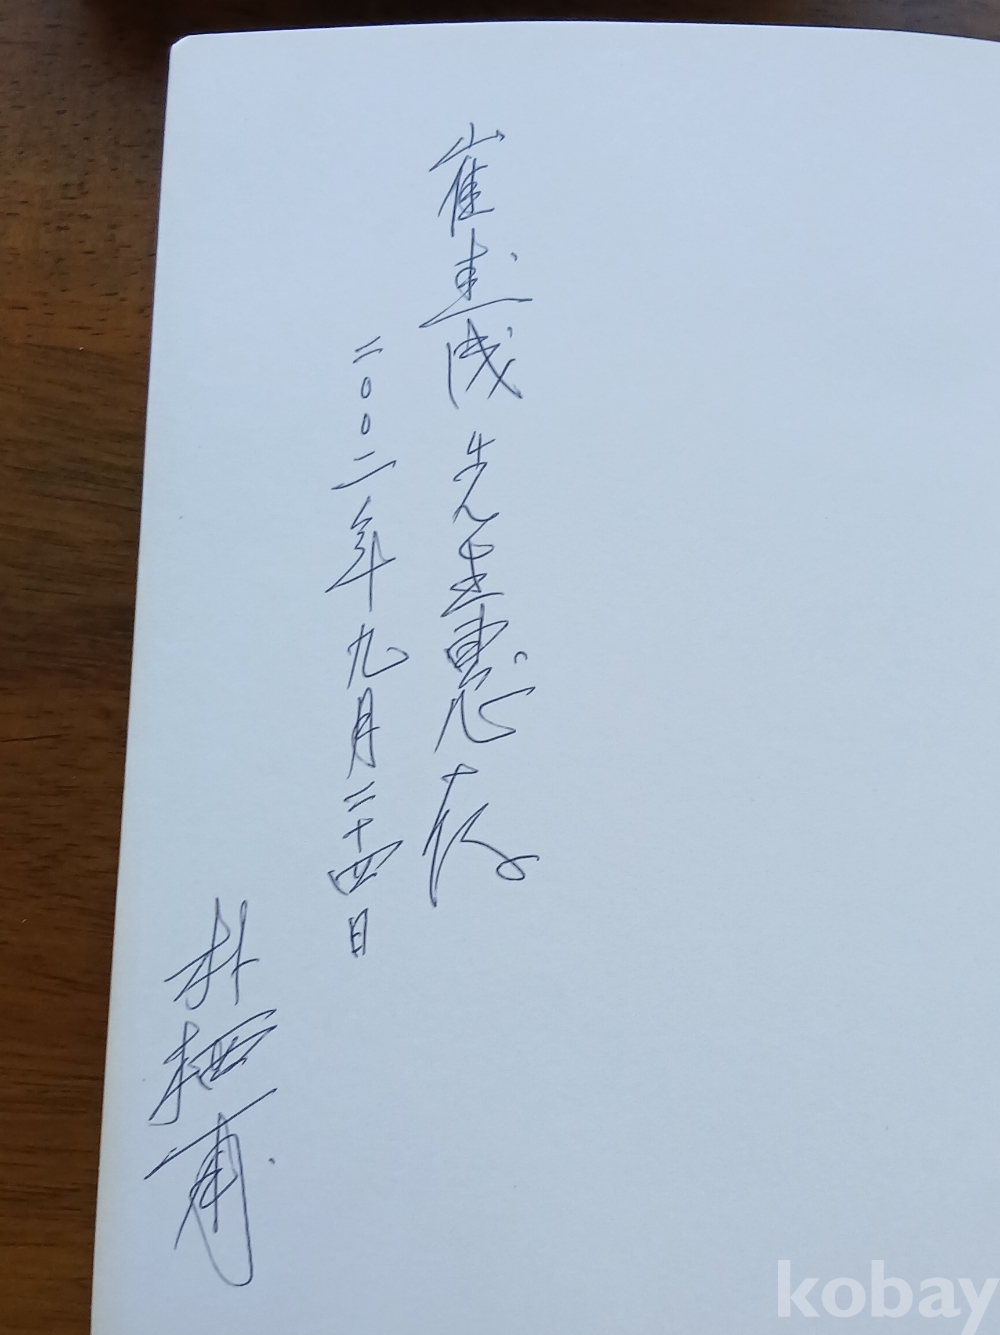 崔圭成 先生惠存
二〇〇二年九月二十四日
朴栖甫
kobay